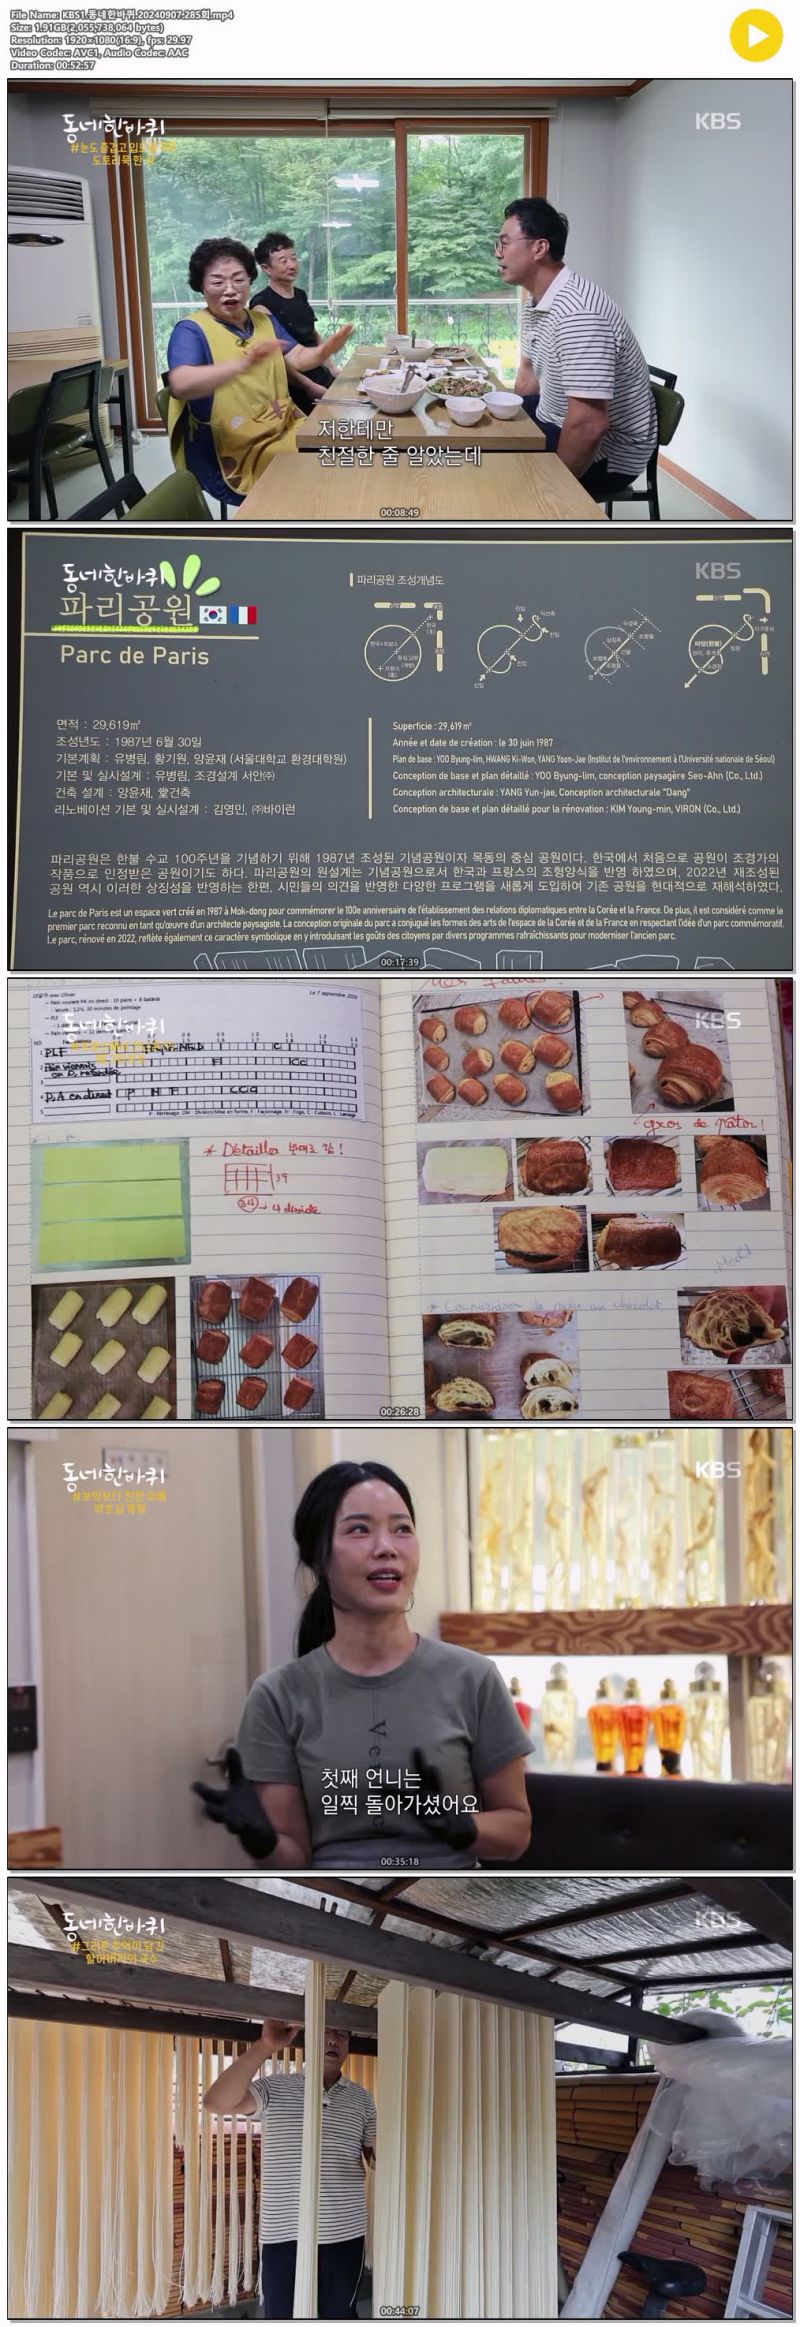 File Name: KBS1.동네한바퀴.20240907.285회.mp4
Size: 1.91GB(2,055,738,064 bytes)
Resolution: 1920×1080(16:9), fps: 29.97
Video Codec: AVC1, Audio Codec: AAC
Duration: 00:52:57
동네한바퀴
KBS
#눈도 즐겁고 입도
도토리묵 한
저한테만
친절한 줄 알았는데
00:08:49
동네한바퀴
KBS
파리공원
Parc de Paris
파리공원 조성개념도
면적 : 29,619㎡
조성년도 : 1987년 6월 30일
기본계획 : 유병림, 황기원, 양윤재 (서울대학교 환경대학원)
기본 및 실시설계 : 유병림, 조경설계 서안㈜
건축 설계 : 양윤재, 堂건축
리노베이션 기본 및 실시설계 : 김영민, ㈜바이런
Superficie : 29,619㎡
Année et date de création : le 30 juin 1987
Plan de base : YOO Byung-lim, HWANG Ki-Won, YANG Yoon-Jae (Institut de l'environnement à l'Université nationale de Séoul)
Conception de base et plan détaillé : YOO Byung-lim, conception paysagère Seo-Ahn (Co., Ltd.)
Conception architecturale : YANG Yun-jae, Conception architecturale "Dang"
Conception de base et plan détaillé pour la rénovation : KIM Young-min, VIRON (Co., Ltd.)
파리공원은 한불 수교 100주년을 기념하기 위해 1987년 조성된 기념공원이자 목동의 중심 공원이다. 한국에서 처음으로 공원이 조경가의
작품으로 인정받은 공원이기도 하다. 파리공원의 원설계는 기념공원으로서 한국과 프랑스의 조형양식을 반영 하였으며, 2022년 재조성된
공원 역시 이러한 상징성을 반영하는 한편, 시민들의 의견을 반영한 다양한 프로그램을 새롭게 도입하여 기존 공원을 현대적으로 재해석하였다.
Le parc de Paris est un espace vert créé en 1987 à Mok-dong pour commémorer le 100e anniversaire de l'établissement des relations diplomatiques entre la Corée et la France. De plus, il est considéré comme le
premier parc reconnu en tant qu'œuvre d'un architecte paysagiste. La conception originale du parc a conjugué les formes des arts de l'espace de la Corée et de la France en respectant l'idée d'un parc commémoratif.
Le parc, rénové en 2022, reflète également ce caractère symbolique en y introduisant les goûts des citoyens par divers programmes rafraîchissants pour moderniser l'ancien parc.
00:17:39
동네한바퀴
KBS
avec Olivier
Le 7 septembre
PLF
P.A en direct
* Détailler 반대로 함!
39
4 divisée
gros de pâton!
* Comparaison de pains au chocolat
00:26:28
동네한바퀴
KBS
첫째 언니는
일찍 돌아가셨어요
00:35:18
동네한바퀴
KBS
#그리운 추억이 담긴
할아버지의 국수
00:44:07